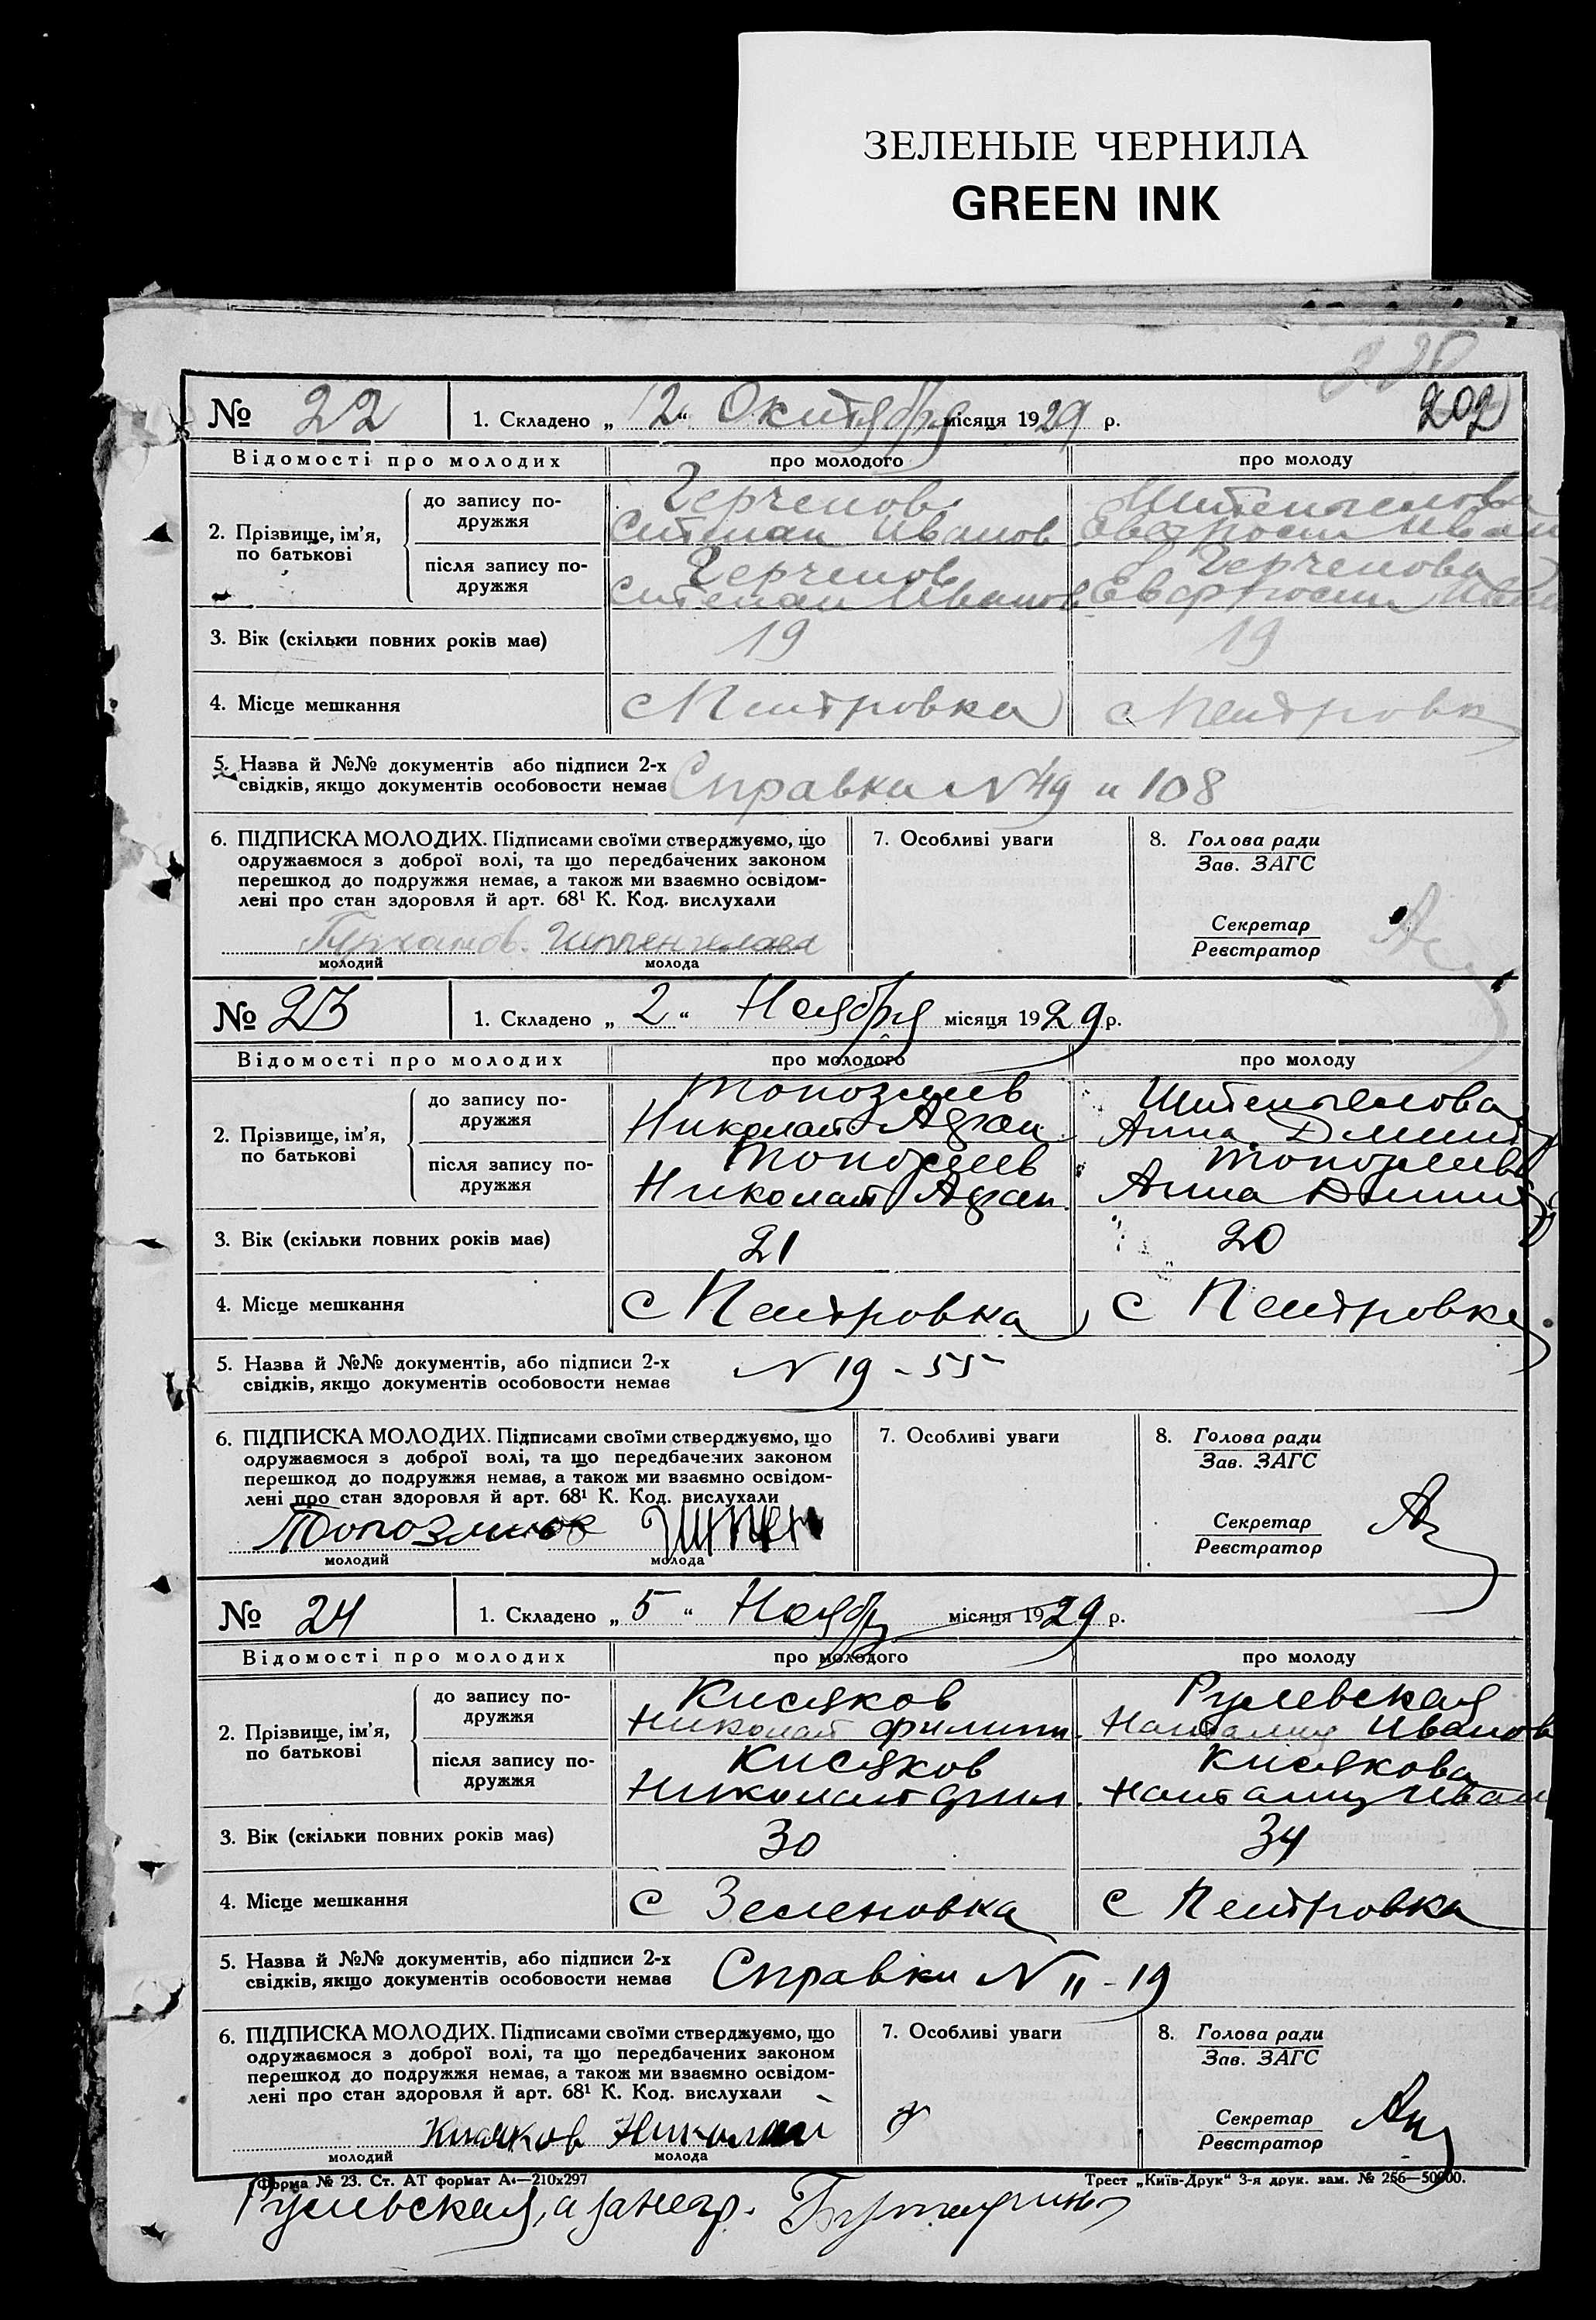 ЗЕЛЕНЫЕ ЧЕРНИЛА
GREEN INK
202
№ 22 1. Складено „ 2 “ Октября місяця 1929 р.
Відомості про молодих про молодого про молоду
2. Прізвище, ім'я, по батькові
до запису подружжя
Иванов
після запису подружжя
3. Вік (скільки повних років має) 19 19
4. Місце мешкання с Петровка с Петровка
5. Назва й №№ документів або підписи 2-х
свідків, якщо документів особовости немає Справки N 49 и 108
6. ПІДПИСКА МОЛОДИХ. Підписами своїми стверджуємо, що 7. Особливі уваги 8. Голова ради
одружаємося з доброї волі, та що передбачених законом Зав. ЗАГС
перешкод до подружжя немає, а також ми взаємно освідом-
лені про стан здоровля й арт. 68¹ К. Код. вислухали
Секретар
Реєстратор
молодий молода
№ 23 1. Складено „ 2 “ Ноября місяця 1929 р.
Відомості про молодих про молодого про молоду
до запису по-
дружжя
Николай Анна
2. Прізвище, ім'я,
по батькові
після запису по-
дружжя
Николай Анна
3. Вік (скільки повних років має) 21 20
4. Місце мешкання с Петровка с Петровка
5. Назва й №№ документів, або підписи 2-х
свідків, якщо документів особовости немає N 19 - 55
6. ПІДПИСКА МОЛОДИХ. Підписами своїми стверджуємо, що 7. Особливі уваги 8. Голова ради
одружаємося з доброї волі, та що передбачених законом Зав. ЗАГС
перешкод до подружжя немає, а також ми взаємно освідом-
лені про стан здоровля й арт. 68¹ К. Код. вислухали
Секретар
Реєстратор
молодий молода
№ 24 1. Складено „ 5 “ Ноябр місяця 1929 р.
Відомості про молодих про молодого про молоду
до запису по- Кисяков Рулевская
дружжя Николай Филипп. Наталия Иванов
2. Прізвище, ім'я,
по батькові
після запису по- Кисяков Кисякова
дружжя Николай Фил. Наталия Иван
3. Вік (скільки повних років має) 30 34
4. Місце мешкання с Зеленовка с Петровка
5. Назва й №№ документів, або підписи 2-х
свідків, якщо документів особовости немає Справки N 11 - 19
6. ПІДПИСКА МОЛОДИХ. Підписами своїми стверджуємо, що 7. Особливі уваги 8. Голова ради
одружаємося з доброї волі, та що передбачених законом Зав. ЗАГС
перешкод до подружжя немає, а також ми взаємно освідом-
лені про стан здоровля й арт. 68¹ К. Код. вислухали
Секретар
Кисяков Николай Реєстратор
молодий молода
Форма № 23. Ст. АТ формат А4—210х297 Трест „Київ-Друк“ 3-я друк. зам. № 256—50000.
Рулевская, а